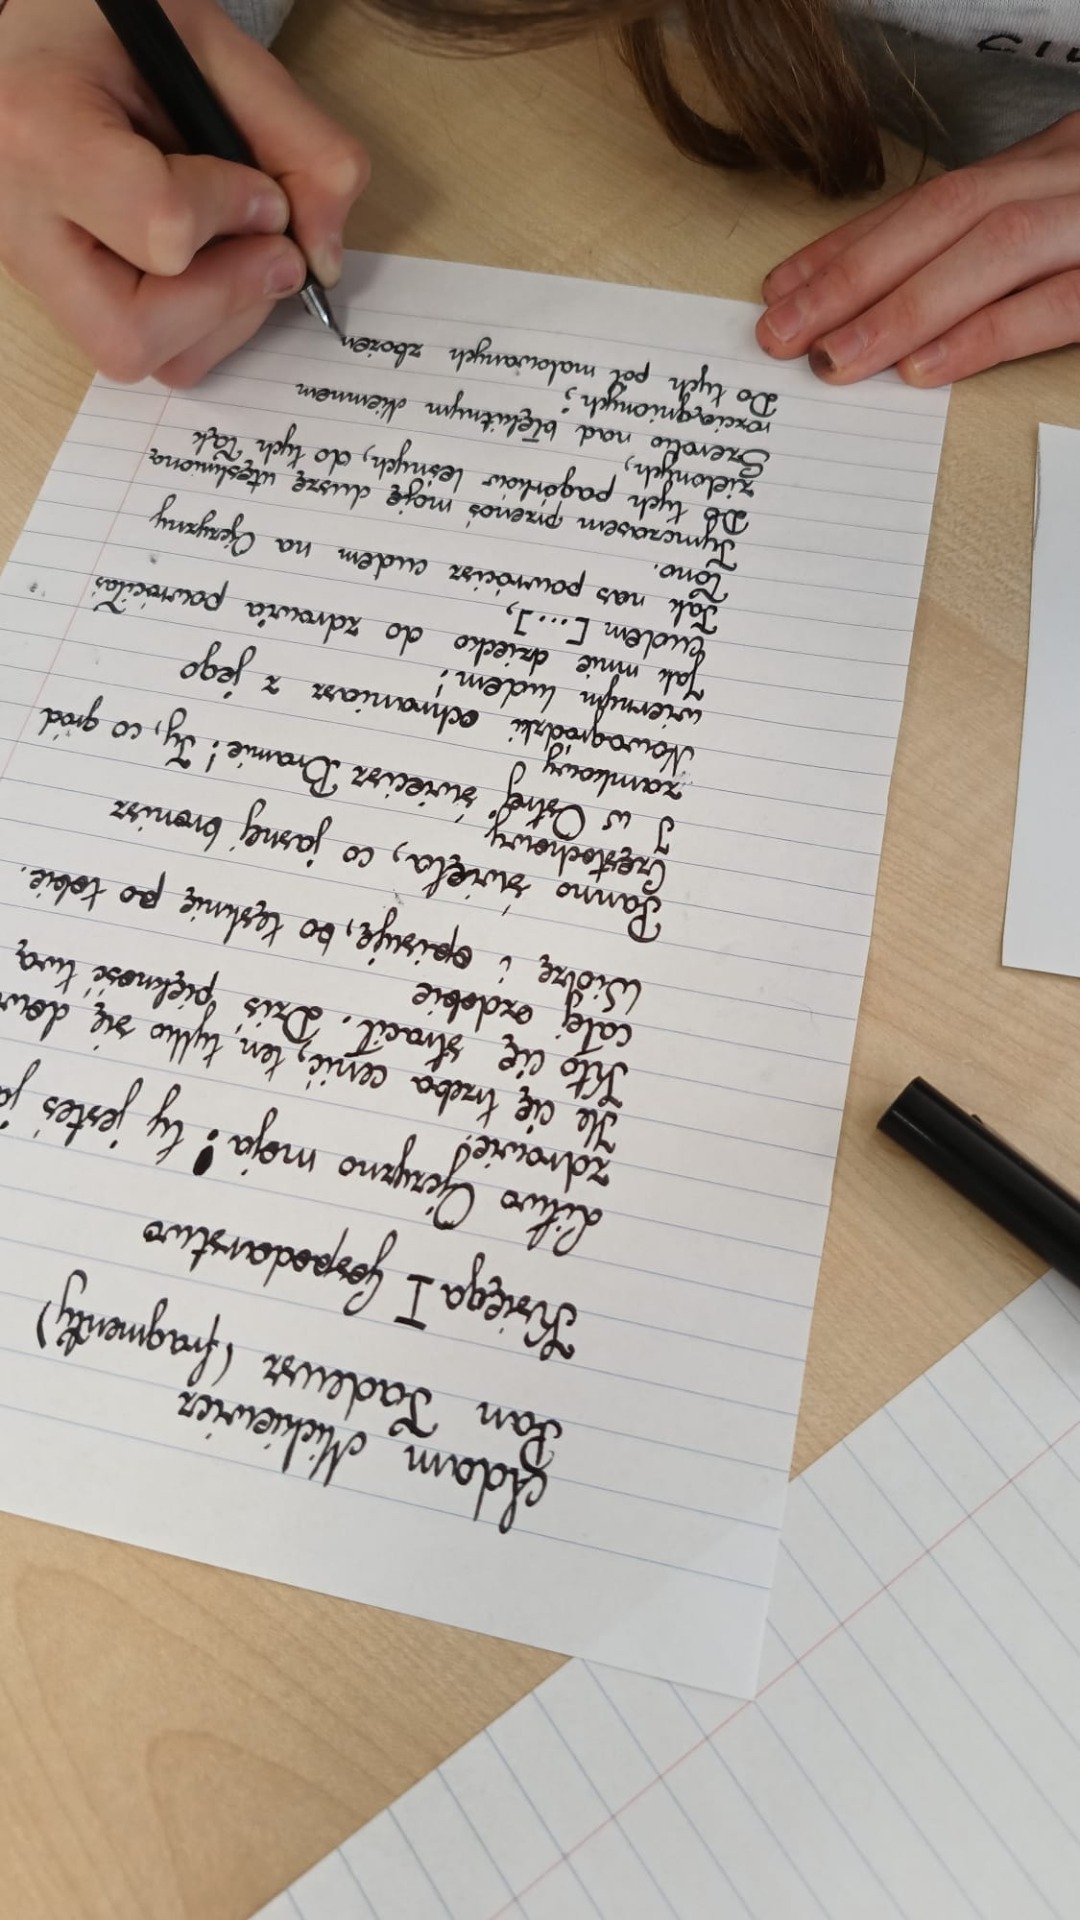 Adam Mickiewicz
Pan Tadeusz (fragmenty)
Księga I Gospodarstwo
Litwo Ojczyzno moja! ty jesteś
zdrowie!
Ile cię trzeba cenić, ten tylko się
Kto cię stracił. Dziś piękność twą
całej ozdobie
Widzę i opisuję, bo tęsknię po tobie.
Panno święta, co jasnej bronisz
Częstochowy
I w Ostrej świecisz Bramie! Ty, co gród
zamkowy
Nowogródzki ochraniasz z jego
wiernym ludem!
Jak mnie dziecko do zdrowia powróciłaś
cudem [...],
Tak nas powrócisz cudem na Ojczyzny
łono.
Tymczasem przenoś moję duszę utęsknioną
Do tych pagórków leśnych, do tych łąk
zielonych,
Szeroko nad błękitnym Niemnem
rozciągnionych;
Do tych pól malowanych zbożem